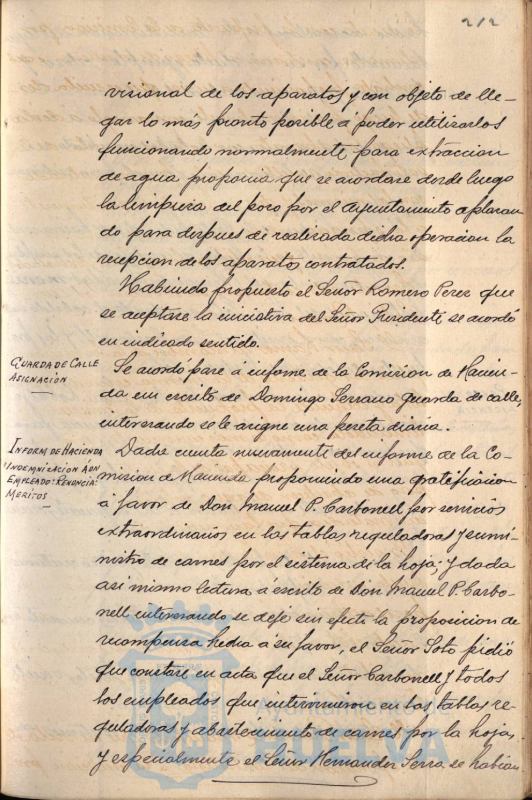 212
visional de los aparatos y con objeto de lle-
gar lo más pronto posible á poder utilizarlos
funcionando normalmente para extraccion
de agua proponia que se acordase desde luego
la limpieza del pozo por el Ayuntamiento aplazan
do para despues de realizada dicha operacion la
recepcion de los aparatos contratados.
Habiendo propuesto el Señor Romero Perez que
se aceptase la iniciativa del Señor Presidente se acordó
en indicado sentido.
GUARDA DE CALLE
ASIGNACIÓN
Se acordó pase á informe de la Comision de Hacien-
da un escrito de Domingo Serrano guarda de calle,
interesando se le asigne una peseta diaria.
INFORM. DE HACIENDA
INDEMNIZACION A UN
EMPLEADO: RENUNCIA:
MERITOS
Dada cuenta nuevamente del informe de la Co-
mision de Hacienda proponiendo una gratificacion
á favor de Don Manuel P. Carbonell por servicios
extraordinarios en las tablas reguladoras y sumi-
nistro de carnes por el sistema de la hoja; y dada
asi mismo lectura á escrito de Don Manuel P. Carbo-
nell interesando se deje sin efecto la proposicion de
recompensa hecha á su favor, el Señor Soto pidió
que constare en acta que el Señor Carbonell y todos
los empleados que intervinieron en las tablas re-
guladoras y abastecimiento de carnes por la hoja,
y especialmente el Señor Hernandez Serra se habian
Ayuntamiento de
HUELVA